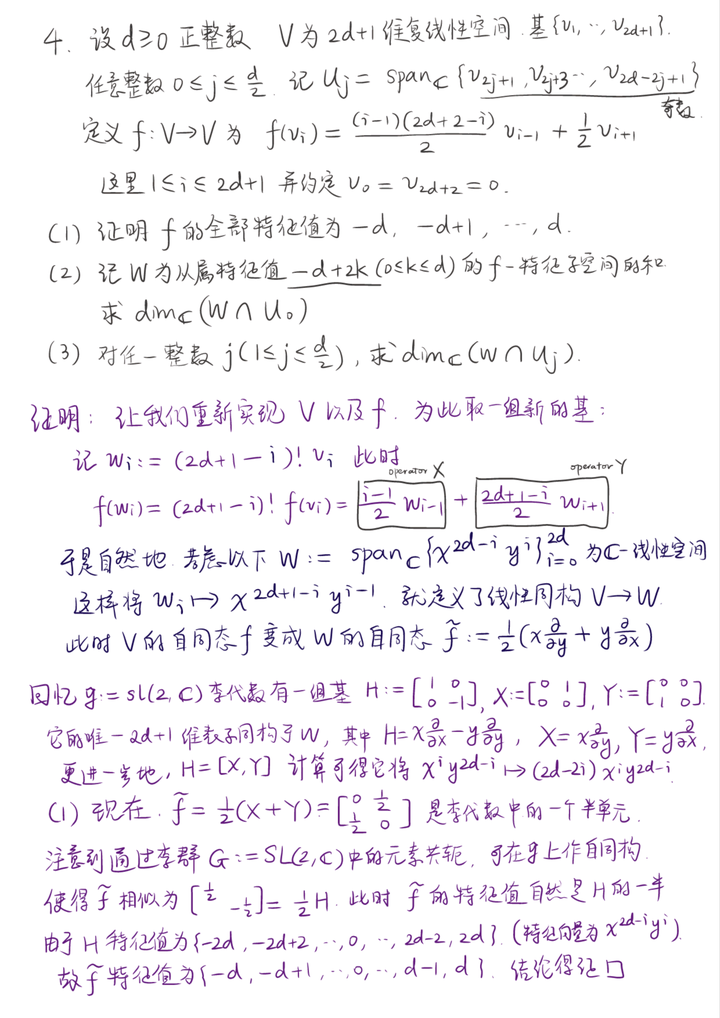 4. 设 d≥0 正整数 V 为 2d+1 维复线性空间. 基{v₁, ‥, v_{2d+1}}.
任意整数 0≤j≤d/2. 记 U_j = span_ℂ {v_{2j+1}, v_{2j+3} ‥, v_{2d-2j+1}}
奇数
定义 f: V→V 为 f(v_i) = (i-1)(2d+2-i)/2 v_{i-1} + 1/2 v_{i+1}
这里 1≤i≤2d+1 并约定 v₀ = v_{2d+2} = 0.
(1) 证明 f 的全部特征值为 -d, -d+1, ⋯, d.
(2) 记 W 为从属特征值 -d+2k (0≤k≤d) 的 f-特征子空间的和
求 dim_ℂ (W ∩ U₀)
(3) 对任一整数 j (1≤j≤d/2), 求 dim_ℂ (W ∩ U_j).
证明: 让我们重新实现 V 以及 f. 为此取一组新的基:
记 w_i := (2d+1-i)! v_i 此时
operator X operator Y
f(w_i) = (2d+1-i)! f(v_i) = i-1/2 w_{i-1} + 2d+1-i/2 w_{i+1}.
于是自然地. 考虑以下 W := span_ℂ {x^{2d-i} y^i}_{i=0}^{2d} 为ℂ-线性空间
这样将 w_i ↦ x^{2d+1-i} y^{i-1}. 就定义了线性同构 V→W.
此时 V 的自同态 f 变成 W 的自同态 f̃ := 1/2 (x ∂/∂y + y ∂/∂x)
回忆 g := sl(2, ℂ) 李代数有一组基 H := [1 0; 0 -1], X := [0 1; 0 0], Y := [0 0; 1 0].
它的唯一 2d+1 维表示同构于 W, 其中 H = x ∂/∂x - y ∂/∂y, X = x ∂/∂y, Y = y ∂/∂x,
更进一步地, H = [X, Y] 计算可得它将 x^i y^{2d-i} ↦ (2d-2i) x^i y^{2d-i}.
(1) 现在. f̃ = 1/2 (X+Y) = [0 1/2; 1/2 0] 是李代数中的一个半单元.
注意到通过李群 G := SL(2, ℂ) 中的元素共轭, 可在 g 上作自同构.
使得 f̃ 相似为 [1/2 -1/2] = 1/2 H. 此时 f̃ 的特征值自然是 H 的一半
由于 H 特征值为{-2d, -2d+2, ‥, 0, ‥, 2d-2, 2d}. (特征向量为 x^{2d-i} y^i).
故 f̃ 特征值为{-d, -d+1, ‥, 0, ‥, d-1, d}. 结论得证 □